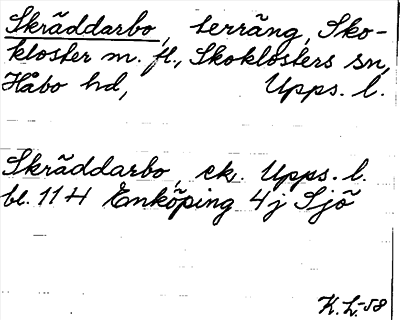 Skräddarbo, terräng, Sko-
kloster m. fl., Skoklosters sn,
Håbo hd, Upps. l.
Skräddarbo, ek. Upps. l.
bl. 11H Enköping 4j Sjö
K.L.-58